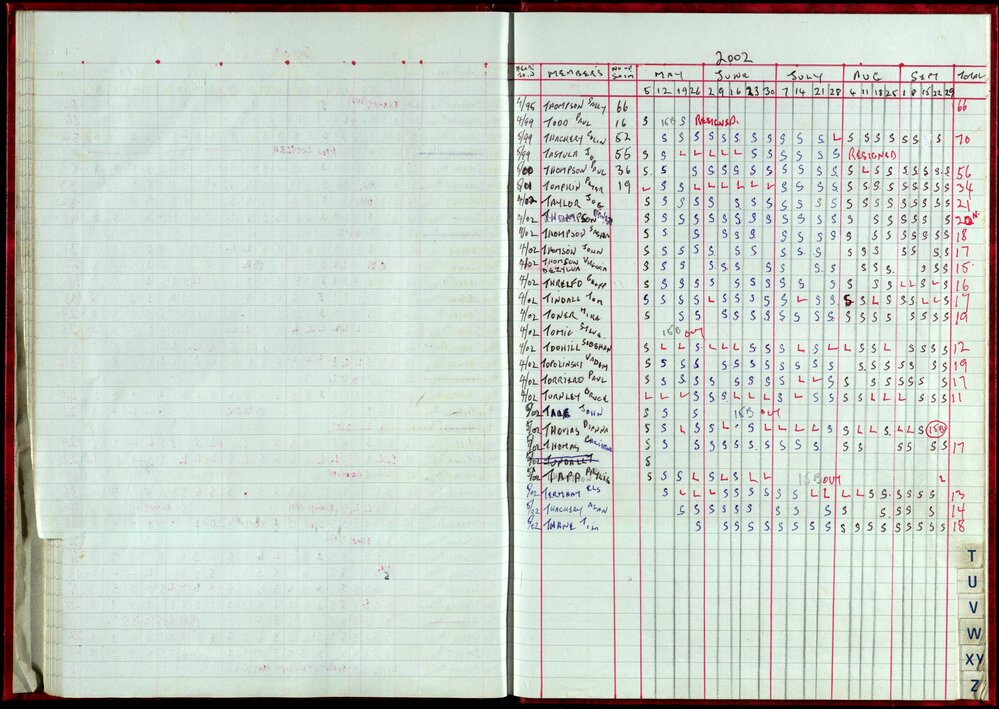 2002
MEMBER'S MAY JUNE JULY AUG SEPT TOTAL
5 12 19 26 2 9 16 23 30 7 14 21 28 4 11 18 25 1 8 15 22 29
4/95 THOMPSON 66 66
4/99 TODD PAUL 16 S 16B S RESIGNED.
5/99 THACKERY COLIN 52 S S S S S S S S S S S S L S S S S S S S 70
5/99 TASTULA JO 55 S S L L L L L S S S S S S RESIGNED
5/00 THOMPSON PAUL 36 S S S S S S S S S S S S S L S S S S S S S 56
5/01 TOMPKIN PETER 19 L S S L L L L L L S S S S S S S S S S S S S 34
4/02 TAYLOR JOE S S S S S S S S S S S S S S S S S S S S S S 21
4/02 THOMPSON S S S S S S S S S S S S S S S S S S S S
4/02 THOMPSON SUSAN S S S S S S S S S S S S S S S S S S 18
4/02 THOMSON JOHN S S S S S S S S S S S S S S S S S 17
4/02 THOMSON
DEZYLVA S S S S S S S S S S S S S S S 15
4/02 THRELFO S S S S S S S S S S S S S S S L L S L S 16
4/02 TINDALL TOM S S S S L S S S S S L S S S S L S S S L L S 17
4/02 TONER MIRA S S S S S S S S S S S S S S S S S S S 19
4/02 TOMIC STEVE 16B OUT
4/02 TOOHILL SIOBHAN S L L S L L L S S S L S L L S S L S S S S 12
4/02 TOPOZINSKI VADIM S S S S S S S S S S S S S S S S S S S 19
4/02 TORRIERO PAUL S S S S S S S S S S L L S S S S S S S S 17
4/02 TURNLEY BRUCE L L L S S L L L S S L S S S S L L L S S S 11
5/02 JOHN S S S 16B OUT
5/02 THOMAS DIANNA S S L S L S L L L L S S L L S L L S 16B
5/02 THOMAS S S S S S S S S S S S S S S S S S 17
5/02 S
5/02 TAPP PHYLLIS S S S L S L S L L 16B OUT L
5/02 TERMENY ELS S L L L S S S S S S L L L L S S S S S S 13
5/02 THACKERY ALAN S S S S S S S S S S S S S S 14
5/02 THANE TIM S S S S S S S S S S S S S S S S S S 18
T
U
V
W
XY
Z